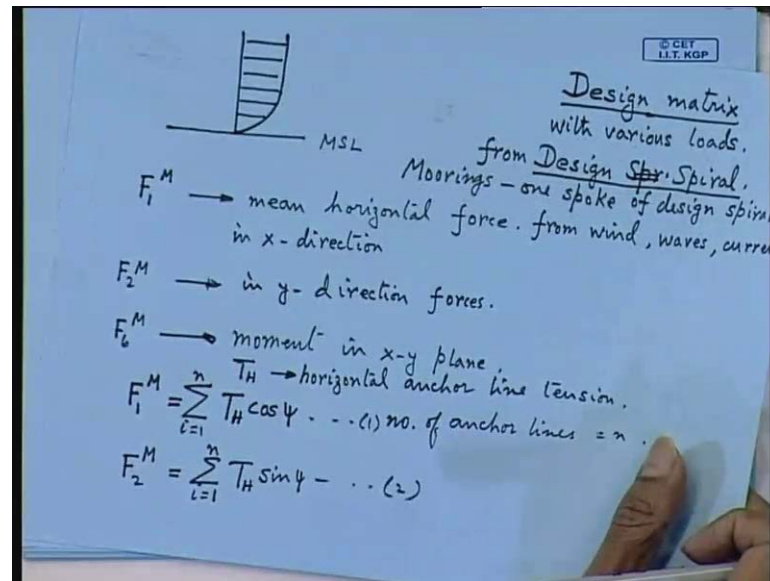 © CET
I.I.T. KGP
Design matrix
with various loads.
from Design Spr. Spiral.
Moorings – one spoke of design spiral
MSL
F₁ᴹ → mean horizontal force. from wind, waves, curre
in x-direction
F₂ᴹ → in y-direction forces.
F₆ᴹ → moment in x-y plane.
T_H → horizontal anchor line tension.
F₁ᴹ = Σᵢ₌₁ⁿ T_H cos ψ . ...(1) no. of anchor lines = n .
F₂ᴹ = Σᵢ₌₁ⁿ T_H sin ψ – ...(2)